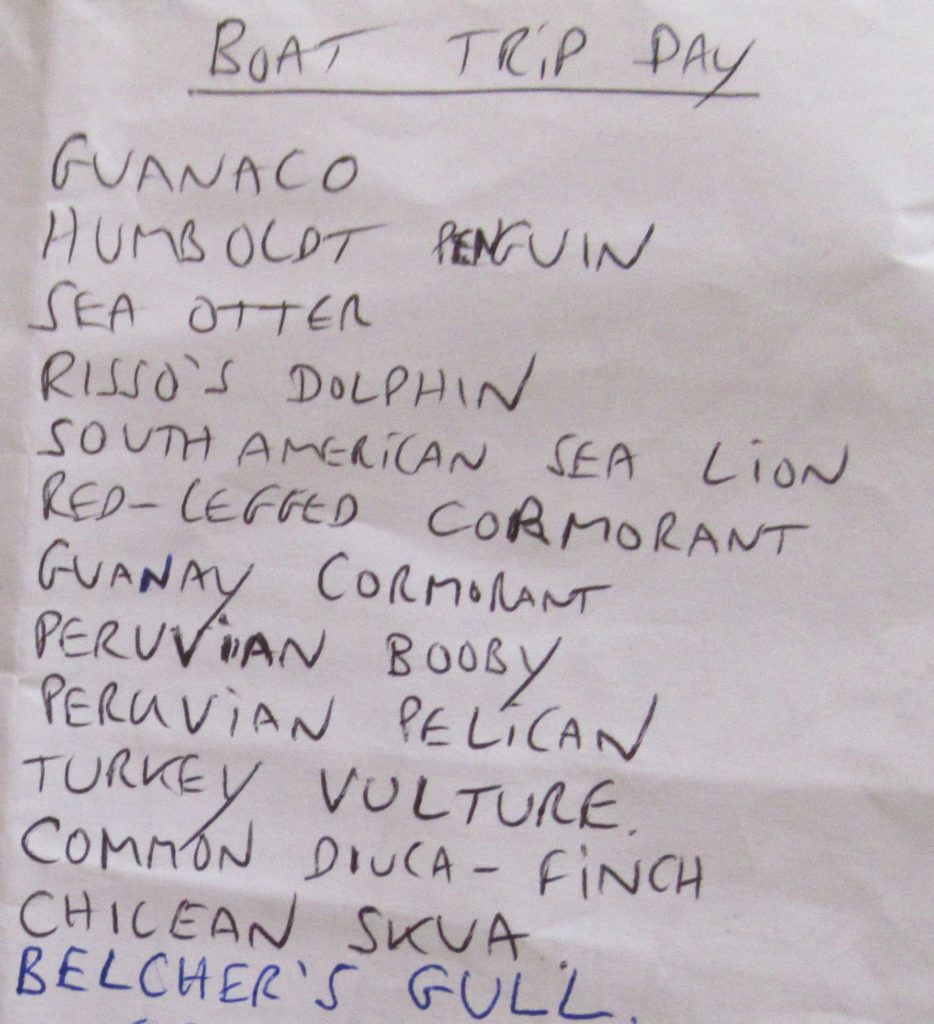 BOAT TRIP DAY
GUANACO
HUMBOLDT PENGUIN
SEA OTTER
RISSO'S DOLPHIN
SOUTH AMERICAN SEA LION
RED-LEGGED CORMORANT
GUANAY CORMORANT
PERUVIAN BOOBY
PERUVIAN PELICAN
TURKEY VULTURE.
COMMON DIUCA-FINCH
CHILEAN SKUA.
BELCHER'S GULL.